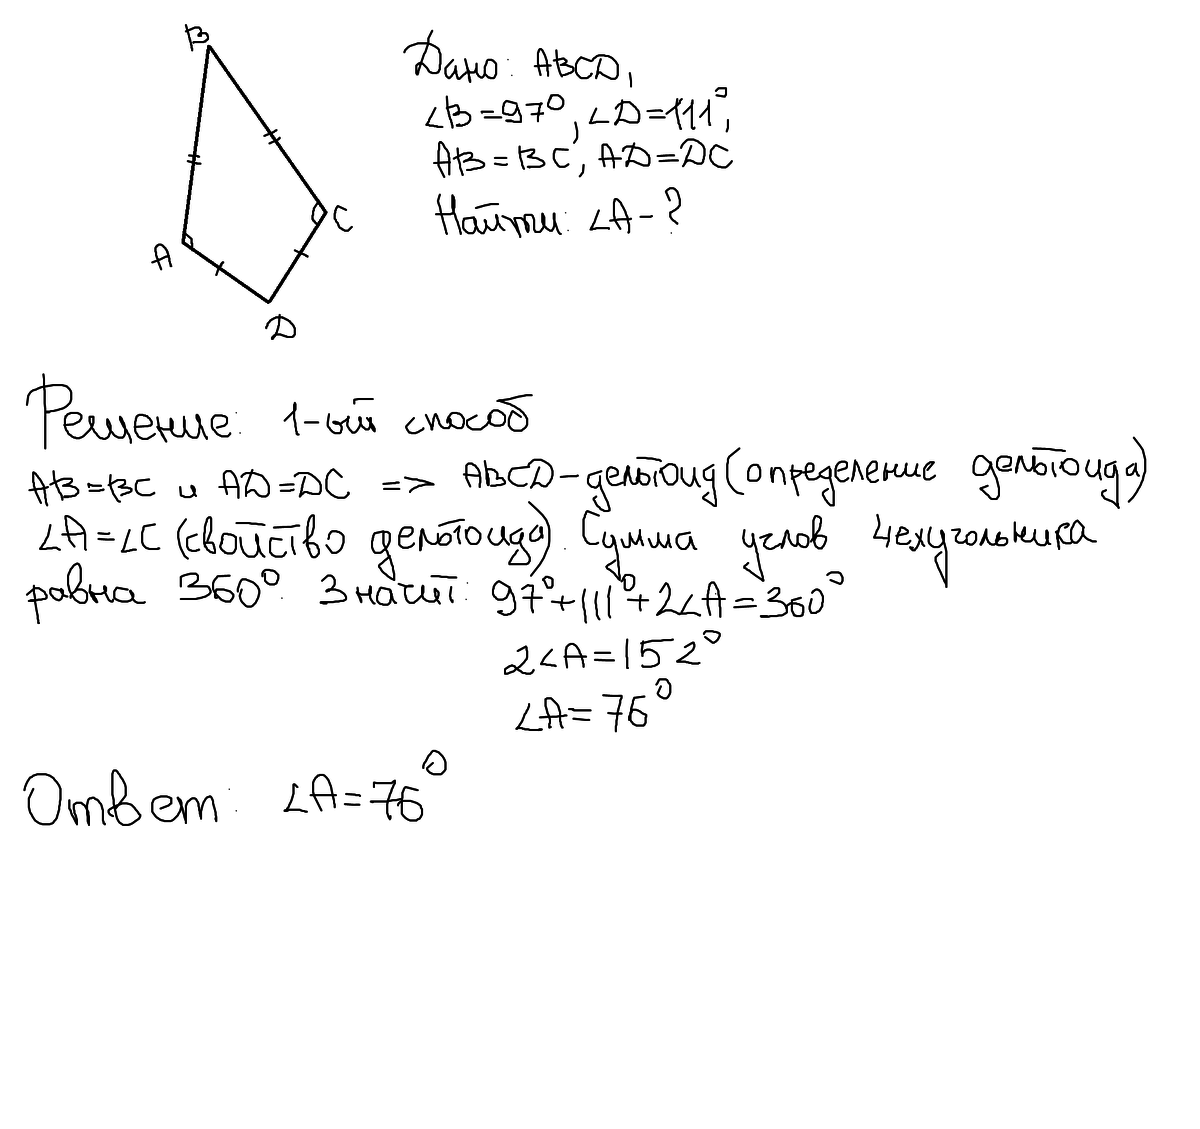 B
A
C
D
Дано: ABCD,
∠B=97°, ∠D=111°,
AB=BC, AD=DC
Найти: ∠A-?
Решение: 1-ый способ
AB=BC и AD=DC => ABCD-дельтоид(определение дельтоида)
∠A=∠C (свойство дельтоида). Сумма углов 4ехугольника
равна 360°. Значит: 97°+111°+2∠A=360°
2∠A=152°
∠A=76°
Ответ: ∠A=76°